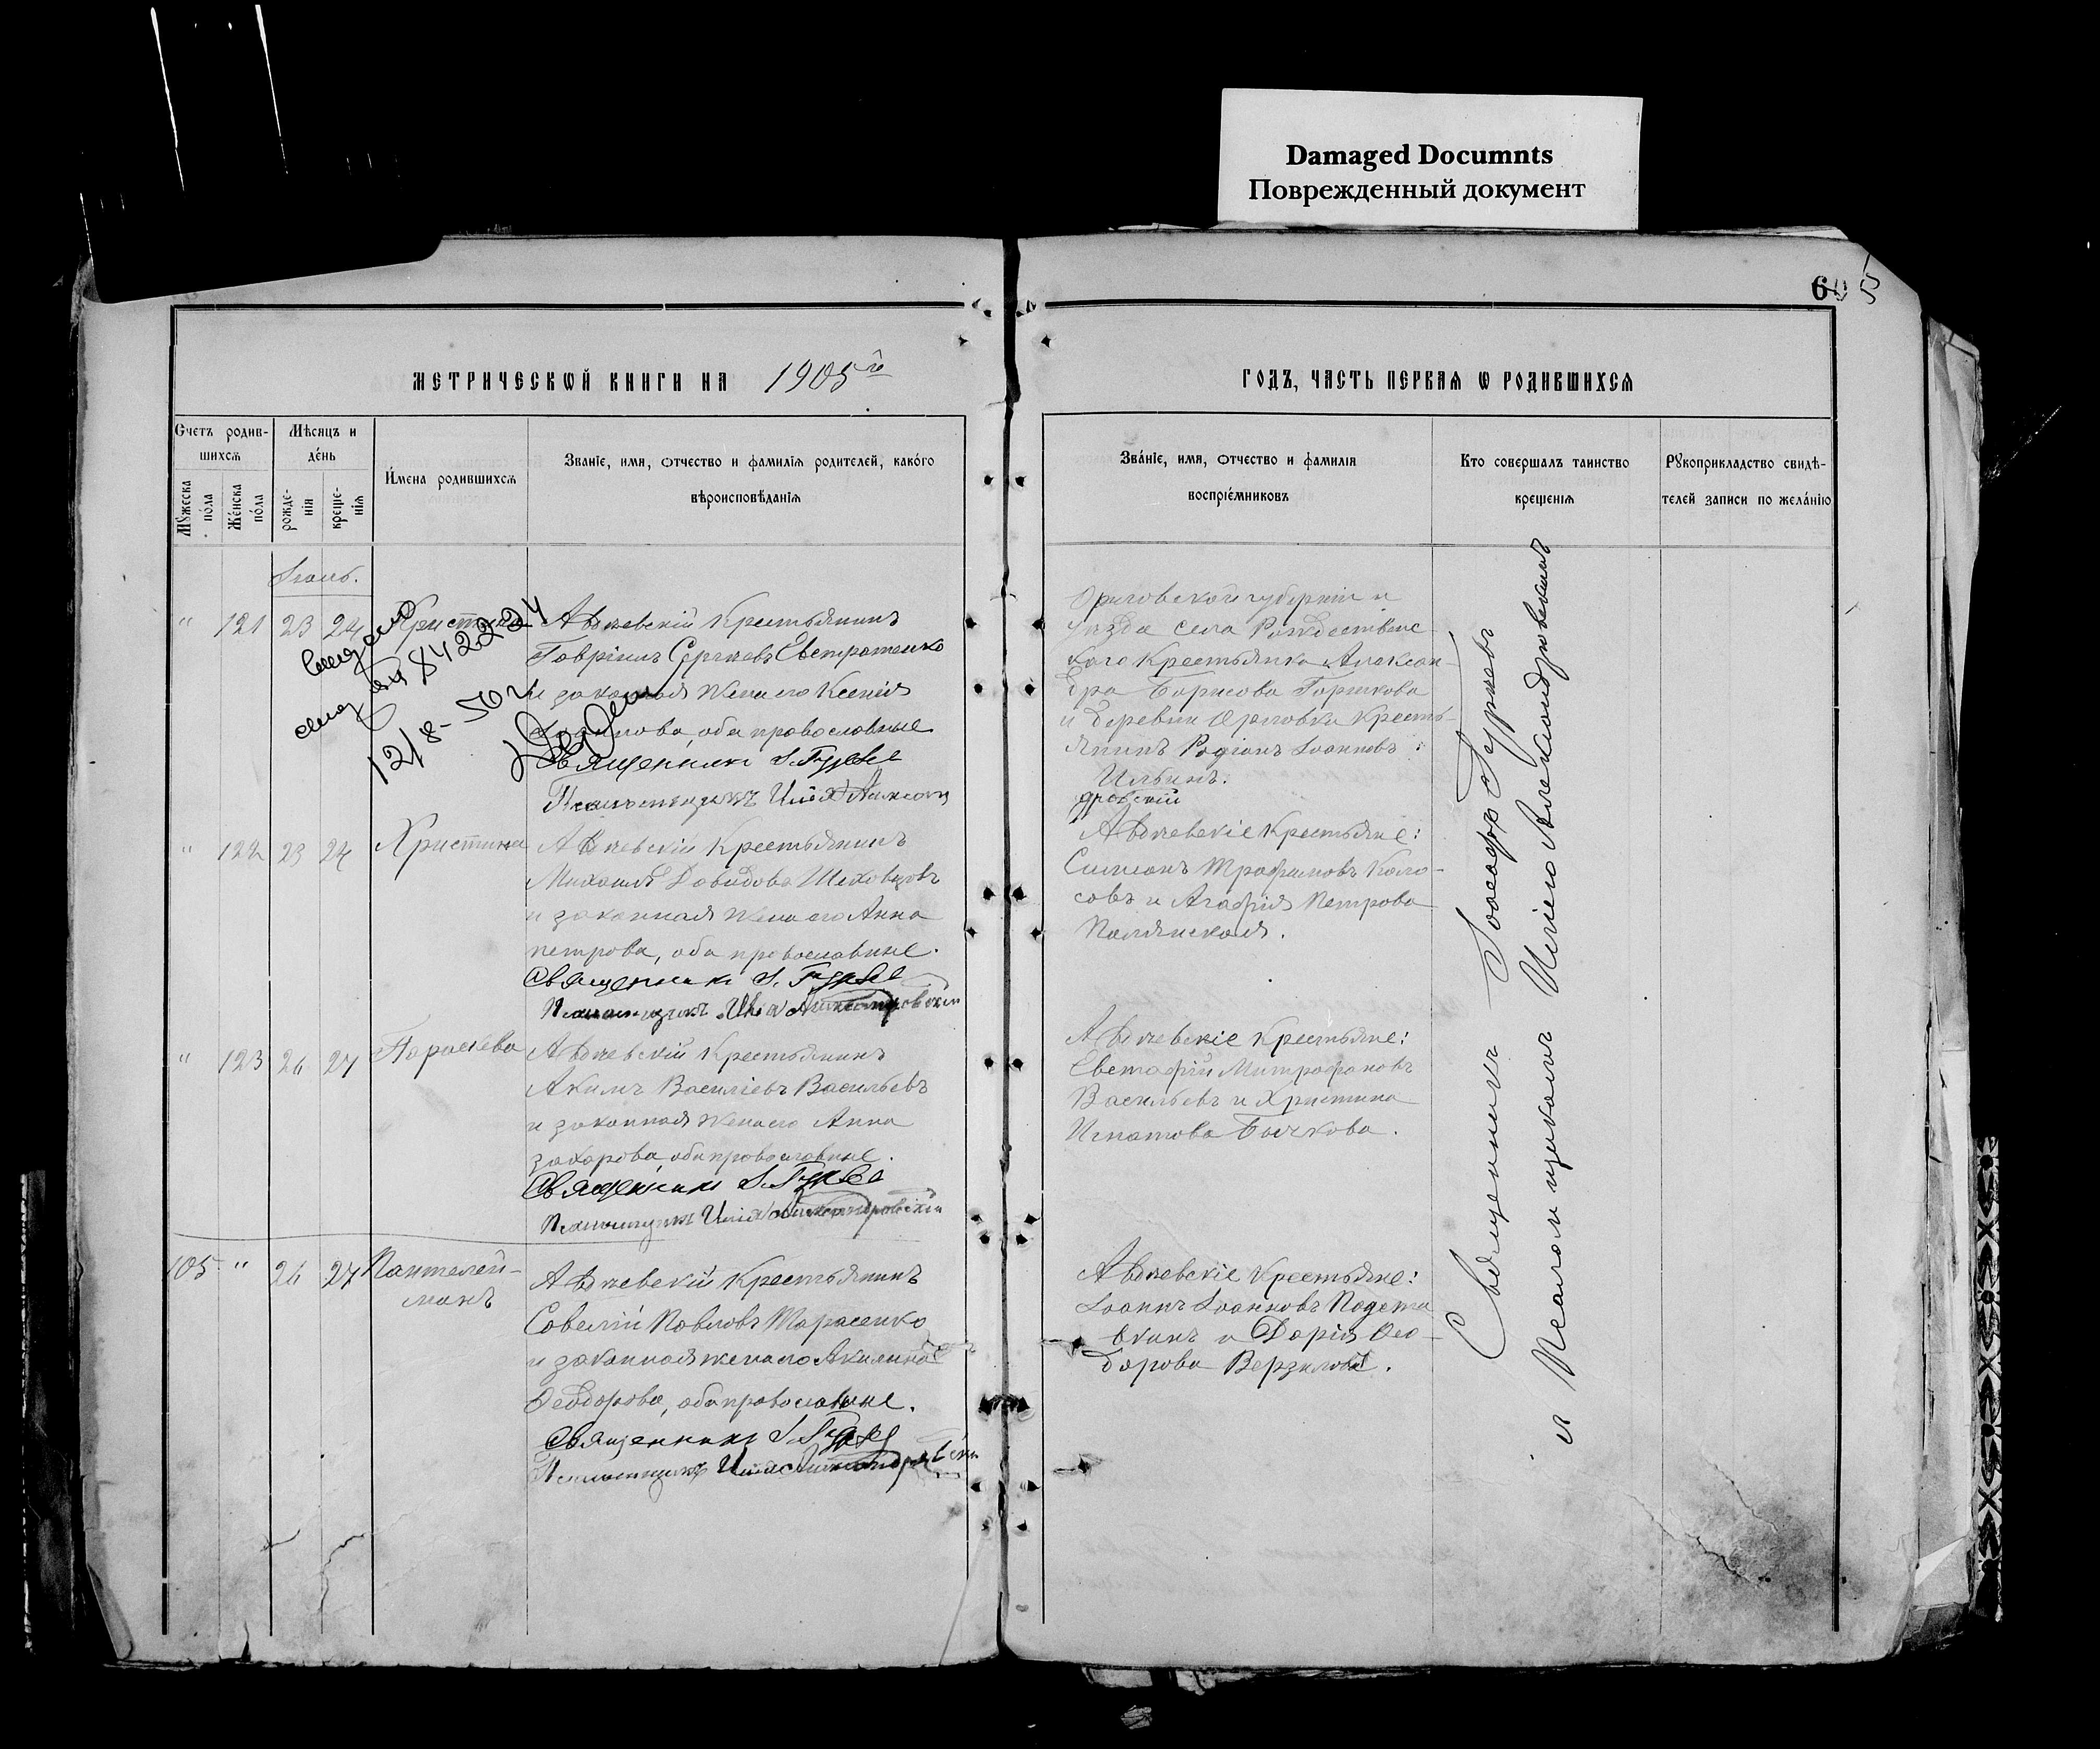 Damaged Documnts
Поврежденный документ
605
МЕТРИЧЕСКѠЙ КНИГИ НА 1905 го
ГОДЪ, ЧАСТЬ ПЕРВАѦ Ѡ РОДИВШИХСѦ
Счетъ родив-
шихсѧ
Мѣсяцъ и
де́нь
Мꙋжеска
по́ла
Же́нска
по́ла
рожде-
нія
креще-
нія
И́мена родившихсѧ
Званіе, имя, ѻтчество и фамиліѧ родителей, како́го
вѣроисповѣданіѧ
Зва́ніе, имя, ѻтчество и фамиліѧ
воспріе́мниковъ
Кто совершалъ таинство
крещеніѧ
Рꙋкоприкладство свидѣ-
телей записи по жела́нію
Іюль.
" 121 23 24 Христина
12/8-50 г
Крестьянинъ
Гавріилъ Сергѣевъ Евстратенко
и законная жена его Ксенія
оба православные
Священникъ І. Гурьевъ
Псаломщикъ Илія Алексан
Орловской губерніи и
уѣзда села Рождественс-
каго Крестьянка Алексан-
дра Борисова Горшкова
и деревни Орловки Кресть-
янинъ Родіонъ Іоанновъ
Ильинъ.
дровскій
" 122 23 24 Христина
Крестьянинъ
Михаилъ Давидовъ Шеховцовъ
и законная жена его Анна
петрова, оба православные.
Священникъ І. Гурьевъ
Псаломщикъ Илія Александровскій
Крестьяне:
Симеонъ Трофимовъ Коло-
совъ и Агафія Петрова
Полянская.
" 123 26 27 Параскева
Крестьянинъ
Акимъ Василіевъ Васильевъ
и законная жена его Анна
захарова, оба православные.
Священникъ І. Гурьевъ
Псаломщикъ Илія Александровскій
Крестьяне:
Евстафій Митрофановъ
Васильевъ и Христина
Игнатова Бычкова.
105 " 26 27 Пантелей-
монъ
Крестьянинъ
Савелій Павловъ Тарасенко
и законная жена его Акилина
Феодорова, оба православные.
Священникъ І. Гурьевъ
Псаломщикъ Илія Александровскій
Крестьяне:
Іоаннъ Іоанновъ
и Дарія Фео-
дорова Верзилова.
Священникъ Іоасафъ Гурьевъ
и Псаломщикъ Илія Александровскій